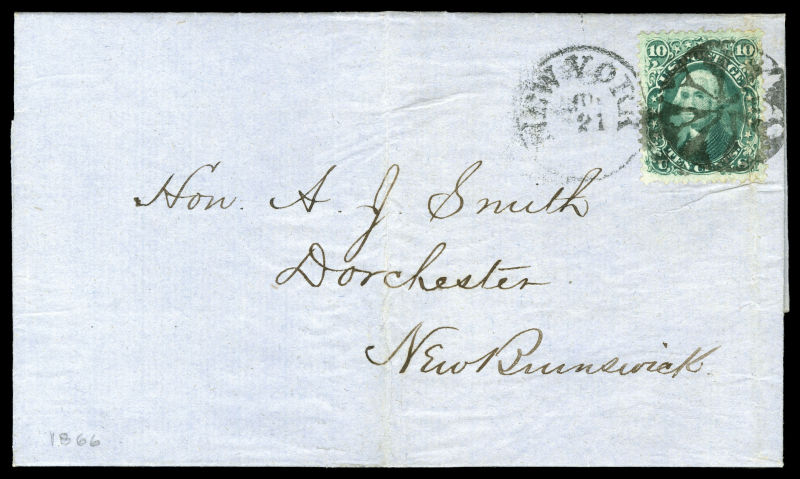 10 10
U.S. POSTAGE
TEN CENTS
NEW YORK
21
Hon. A. J. Smith
Dorchester
New Brunswick.
1866